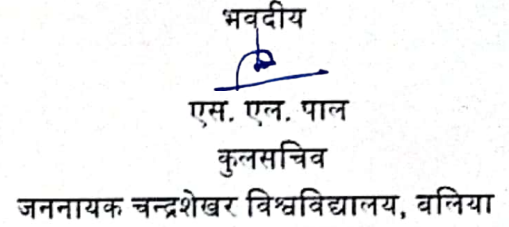 भवदीय
एस. एल. पाल
कुलसचिव
जननायक चन्द्रशेखर विश्वविद्यालय, बलिया